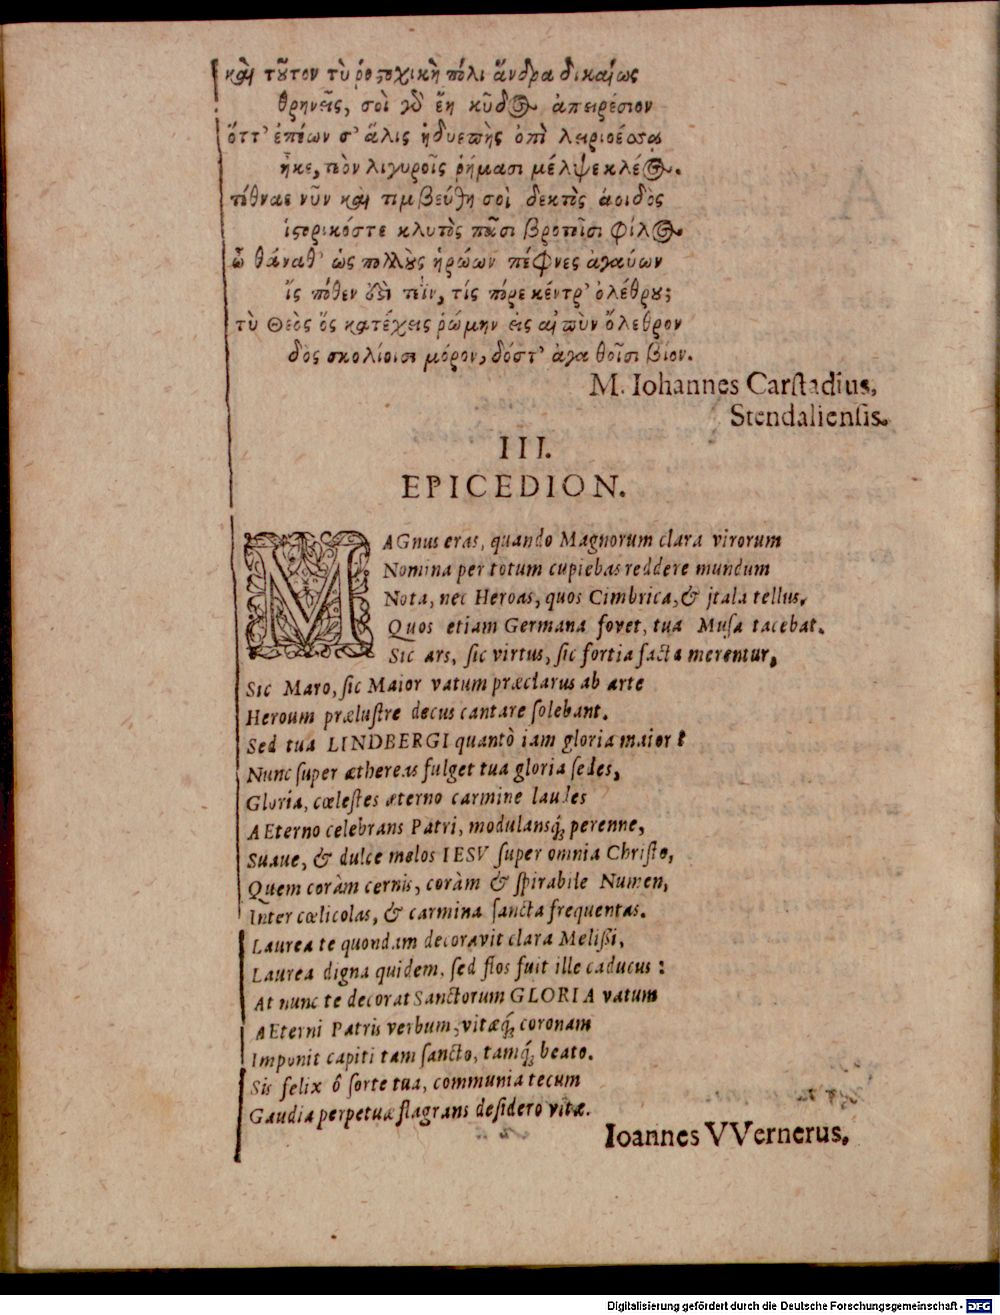 καὶ τοῦτον τὺ ῥοστοχικὴ πόλι ἄνδρα δικαίως
θρηνεῖς, σοὶ γὸ ἔη κῦδος ἀπειρέσιον
ὅττ' ἐπέων σ' ἅλις ἡδυεπὴς ὀπὶ λειριοέσσῃ
ἧκε, τεὸν λιγυροῖς ῥήμασι μέλψε κλέος.
τέθναε νῦν καὶ τιμβεύθη σοὶ δεκτὸς ἀοιδὸς
ἱστορικόστε κλυτὸς πᾶσι βροτοῖσι φίλος
ὦ θάναθ' ὡς πολλοὺς ἡρώων πέφνες ἀγαύων
ἲς πόθεν ὅσι τεῒν, τίς πόρε κέντρ' ὀλέθρου;
τὺ Θεὸς ὃς κατέχεις ῥώμην εἰς αἰπὺν ὄλεθρον
δὸς σκολίοισι μόρον, δόστ' ἀγαθοῖσι βίον.
M. Iohannes Carſtadius,
Stendalienſis.
III.
EPICEDION.
MAGnus eras, quando Magnorum clara virorum
Nomina per totum cupiebas reddere mundum
Nota, nec Heroas, quos Cimbrica, & jtala tellus,
Quos etiam Germana fovet, tua Muſa tacebat.
Sic ars, ſic virtus, ſic fortia facta merentur,
Sic Maro, ſic Maior vatum præclarus ab arte
Heroum præluſtre decus cantare ſolebant.
Sed tua LINDBERGI quantò iam gloria maior?
Nunc ſuper æthereas fulget tua gloria ſedes,
Gloria, cœleſtes æterno carmine laudes
AEterno celebrans Patri, modulansq́; perenne,
Suaue, & dulce melos IESV ſuper omnia Chriſto,
Quem coràm cernis, coràm & ſpirabile Numen,
Inter cœlicolas, & carmina ſancta frequentas.
Laurea te quondam decoravit clara Meliſsi,
Laurea digna quidem, ſed flos fuit ille caducus:
At nunc te decorat Sanctorum GLORIA vatum
AEterni Patris verbum, vitæq́; coronam
Imponit capiti tam ſancto, tamq́; beato.
Sis felix ô ſorte tua, communia tecum
Gaudia perpetuæ flagrans deſidero vitæ.
Ioannes VVernerus.
Digitalisierung gefördert durch die Deutsche Forschungsgemeinschaft - DFG